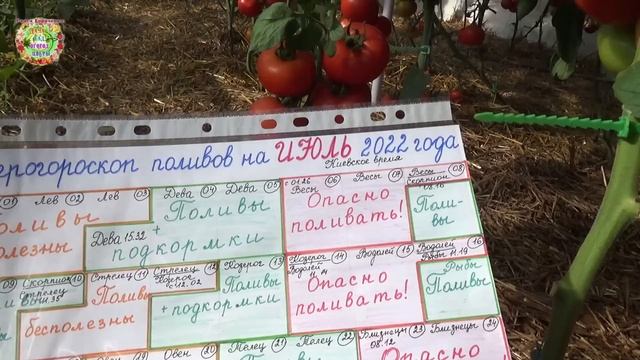 ерогороскоп поливов на ИЮЛЬ 2022 года
Киевское время
01 Лев 02 Лев 03
Дева 04 Дева 05
с 01.26 06 Весы 07
Весы
Весы 08
Скорпион
с 08.16
Поливы
бесполезны
Дева 15.32
Поливы
+
подкормки
Опасно
поливать!
Поли-
вы
09 Скорпион 10
Стрелец
Стрелец 11
Стрелец 12
Козерог
с 12.02
Козерог 13
Козерог 14
Водолей
Водолей 15
Водолей 16
Рыбы 11.19
Поливы
бесполезны
Поливы
+ подкормки
Опасно
поливать!
Рыбы
Поливы
19 Овен 20
Телец 21 Телец 22
Близнецы 23 Близнецы 24
08.12
Поливы
Опасно